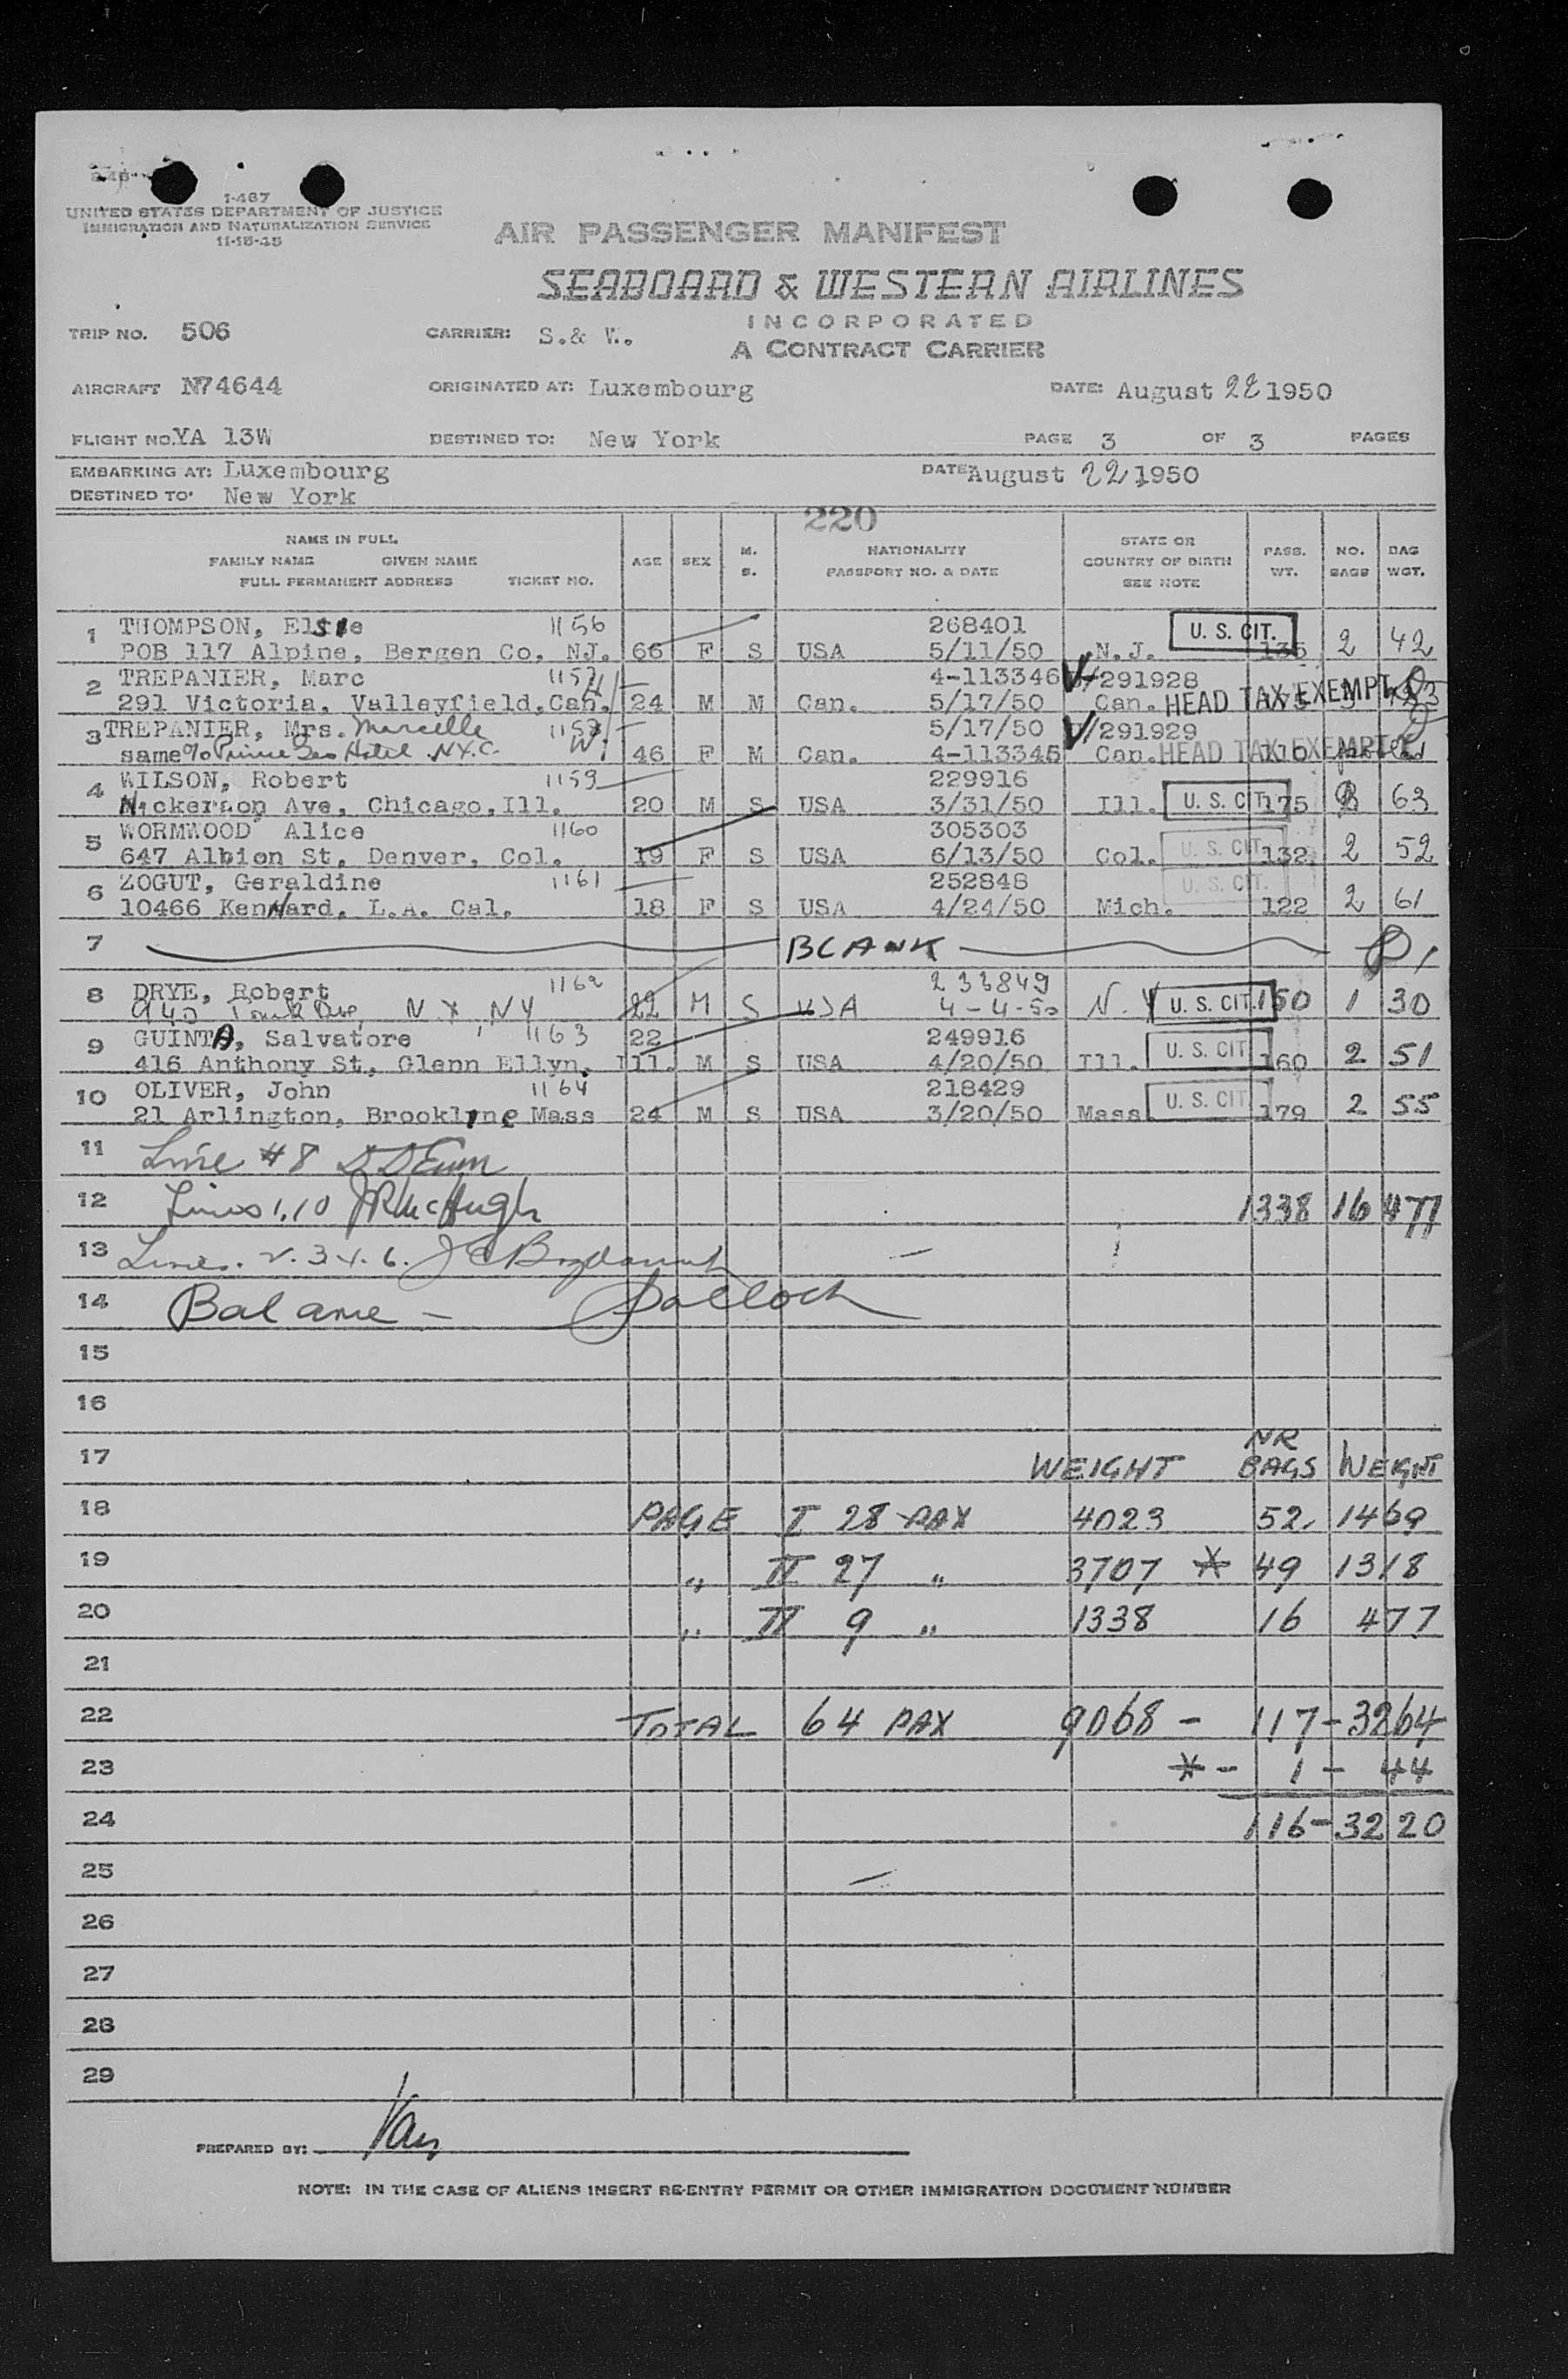 1-467
UNITED STATES DEPARTMENT OF JUSTICE
IMMIGRATION AND NATURALIZATION SERVICE
11-15-45
AIR PASSENGER MANIFEST
SEABOARD & WESTERN AIRLINES
INCORPORATED
A CONTRACT CARRIER
TRIP NO. 506 CARRIER: S.& W.
AIRCRAFT N74644 ORIGINATED AT: Luxembourg DATE: August 22 1950
FLIGHT NO. YA 13W DESTINED TO: New York PAGE 3 OF 3 PAGES
EMBARKING AT: Luxembourg DATE: August 22 1950
DESTINED TO: New York
220
NAME IN FULL
FAMILY NAME GIVEN NAME
FULL PERMANENT ADDRESS TICKET NO. AGE SEX M. S. NATIONALITY PASSPORT NO. & DATE STATE OR COUNTRY OF BIRTH SEE NOTE PASS. WT. NO. BAGS BAG WGT.
1 THOMPSON, Elsie 1156 268401 U. S. CIT.
POB 117 Alpine, Bergen Co. NJ. 66 F S USA 5/11/50 N.J. 135 2 42
2 TREPANIER, Marc 1157 4-113346 V/291928
291 Victoria, Valleyfield, Can. 24 M M Can. 5/17/50 Can. HEAD TAX EXEMPT
3 TREPANIER, Mrs. Marcelle 1158 5/17/50 V/291929
same % Prince Geo Hotel N.Y.C. 46 F M Can. 4-113345 Can. HEAD TAX EXEMPT 110
4 WILSON, Robert 1159 229916
Nickerson Ave, Chicago, Ill. 20 M S USA 3/31/50 Ill. U. S. CIT. 175 63
5 WORMWOOD Alice 1160 305303
647 Albion St, Denver, Col. 19 F S USA 6/13/50 Col. U. S. CIT. 132 2 52
6 ZOGUT, Geraldine 1161 252848 U. S. CIT.
10466 KenNard, L.A. Cal. 18 F S USA 4/24/50 Mich. 122 2 61
7 BLANK
8 DRYE, Robert 1162 233849
940 Park Ave, N Y, NY 22 M S USA 4-4-50 N.Y U. S. CIT. 150 1 30
9 GUINTA, Salvatore 1163 22 249916
416 Anthony St, Glenn Ellyn, Ill. M S USA 4/20/50 Ill. U. S. CIT. 160 2 51
10 OLIVER, John 1164 218429
21 Arlington, Brookline Mass 24 M S USA 3/20/50 Mass U. S. CIT. 179 2 55
11 Line #8
12 Lines 1, 10 JR McHugh 1338 16 477
13 Lines. 2. 3 4. 6.
14 Balance -
15
16
17 WEIGHT NR BAGS WEIGHT
18 PAGE I 28 PAX 4023 52 1469
19 " II 27 " 3707 * 49 1318
20 " II 9 " 1338 16 477
21
22 TOTAL 64 PAX 9068 - 117 - 3264
23 * - 1 - 44
24 116 - 3220
25
26
27
28
29
PREPARED BY:
NOTE: IN THE CASE OF ALIENS INSERT RE-ENTRY PERMIT OR OTHER IMMIGRATION DOCUMENT NUMBER